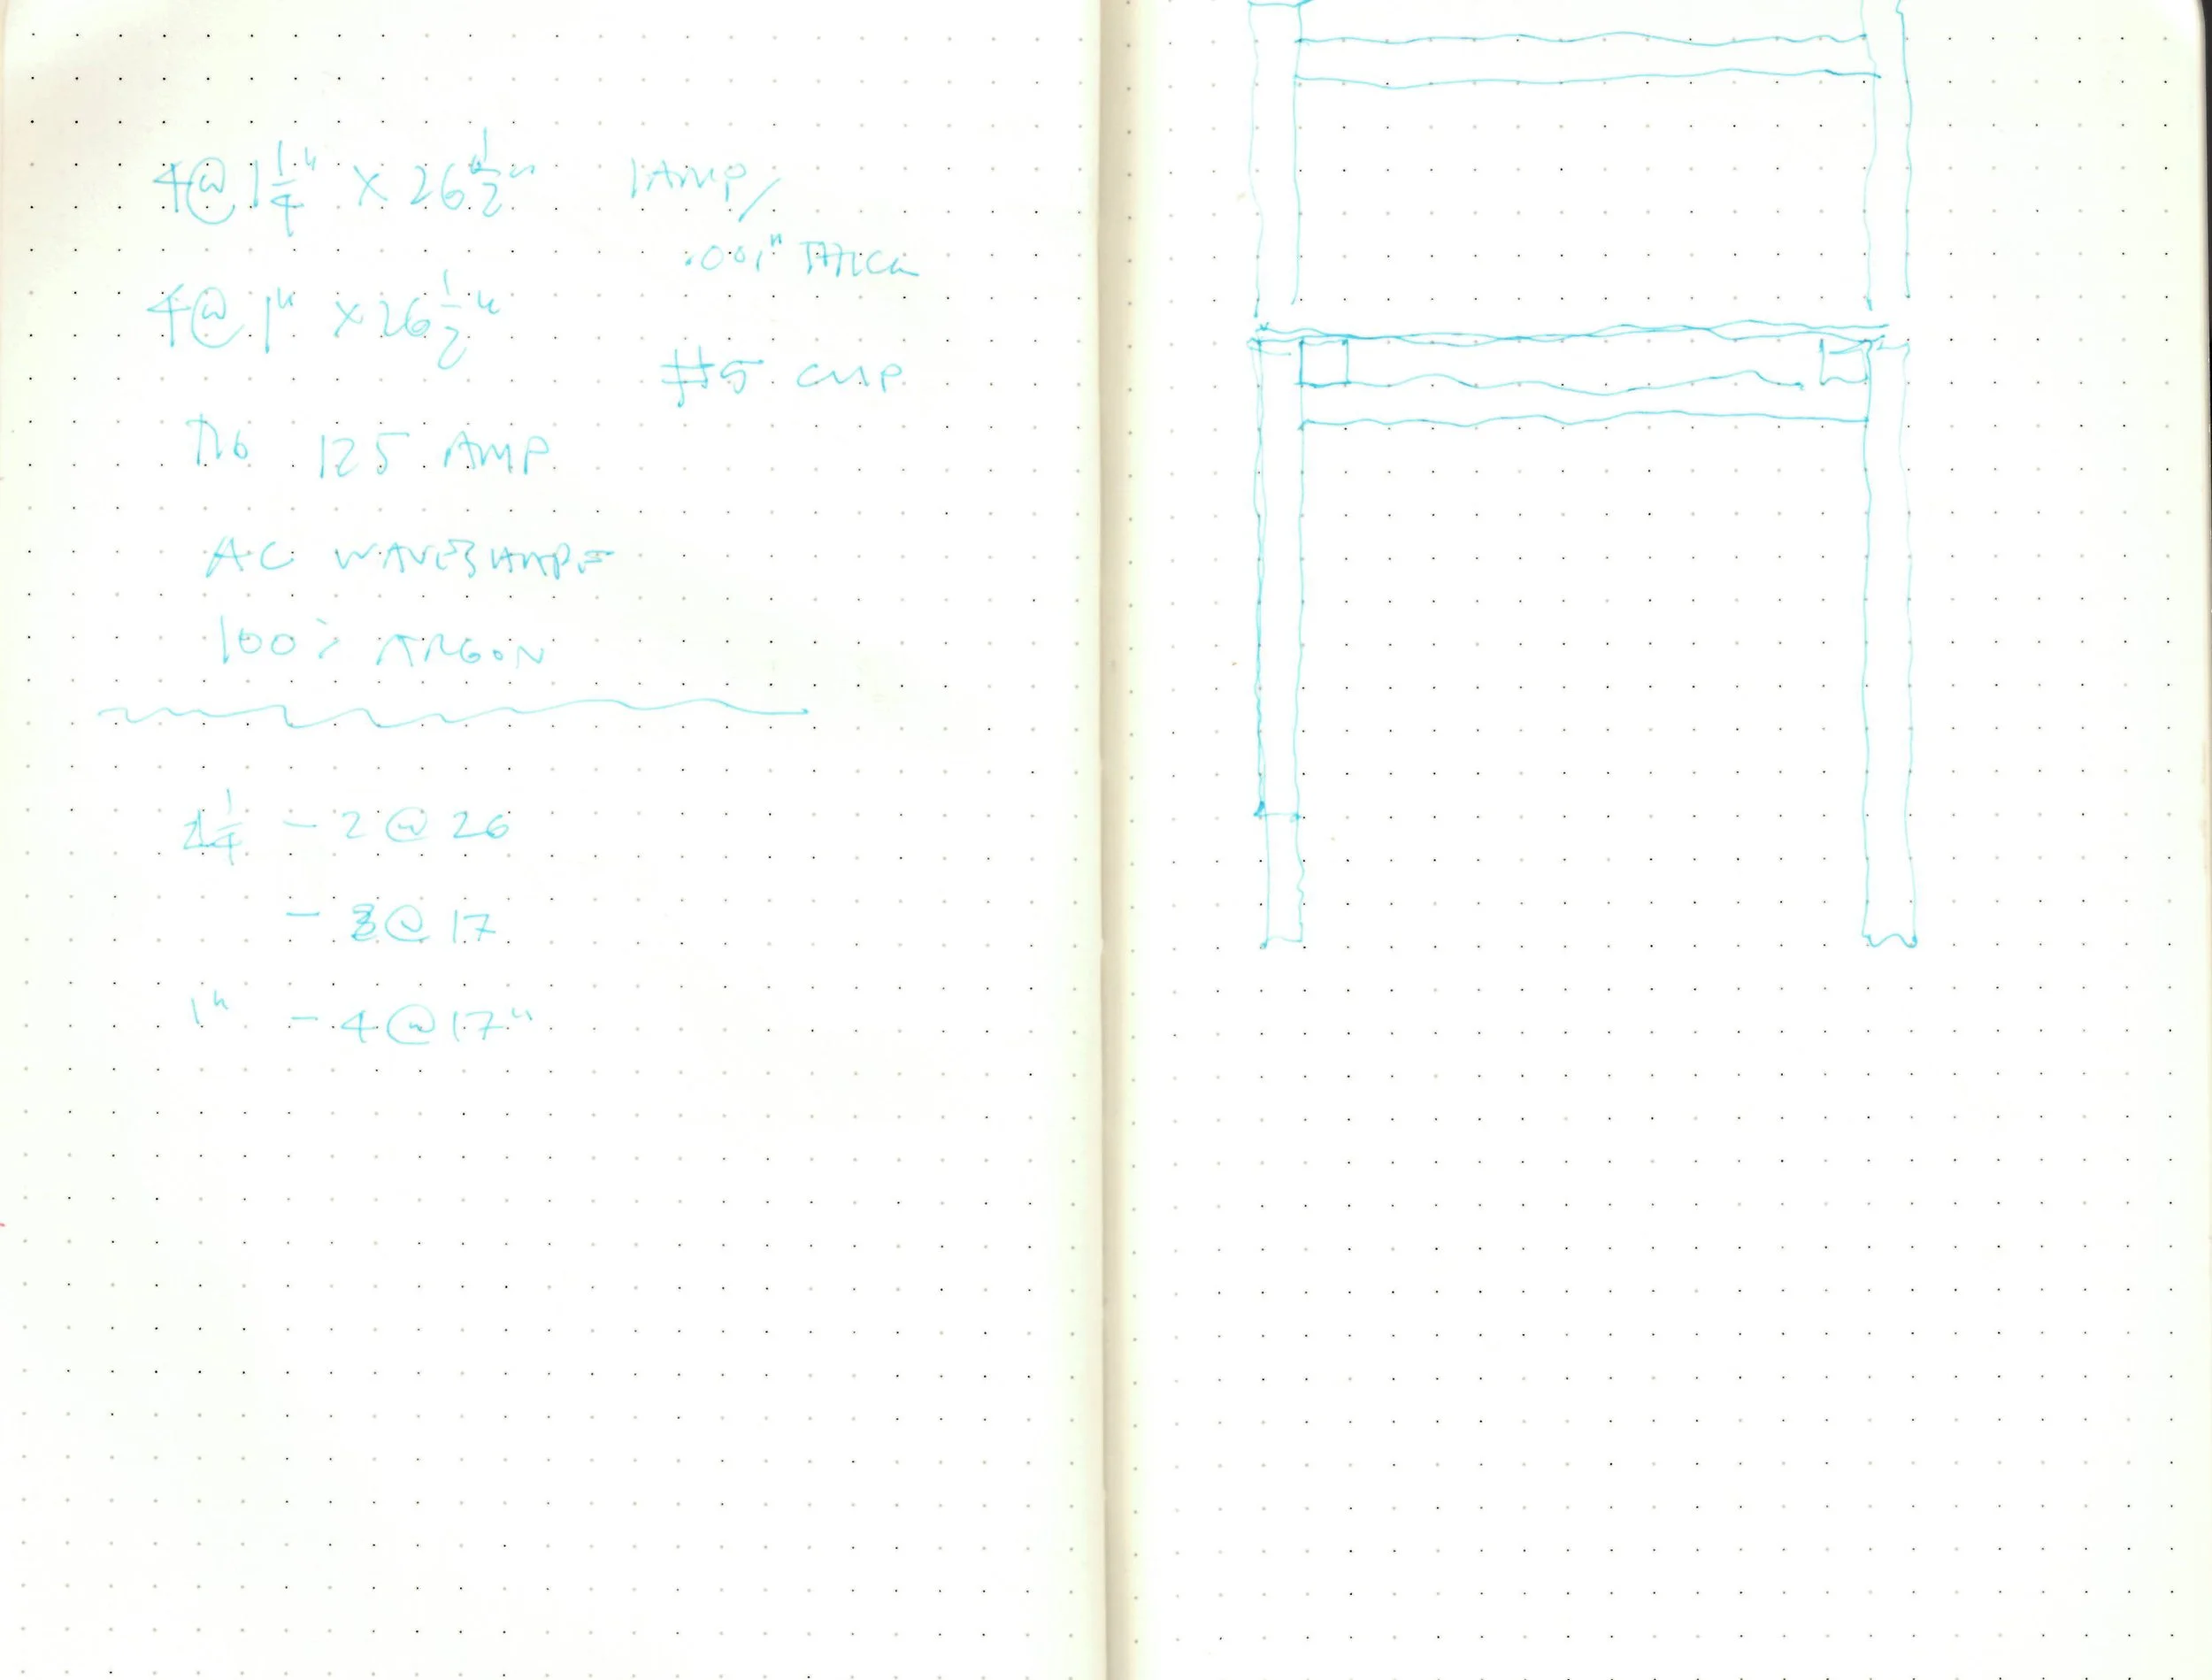 4@ 1 1/4" x 26 1/2"
1 AMP/
.001" THICK
4@ 1" x 26 1/2"
#5 CUP
TIG 125 AMP
AC WAVESHAPE
100% ARGON
1 1/4 - 2 @ 26
- 3 @ 17
1" - 4 @ 17"